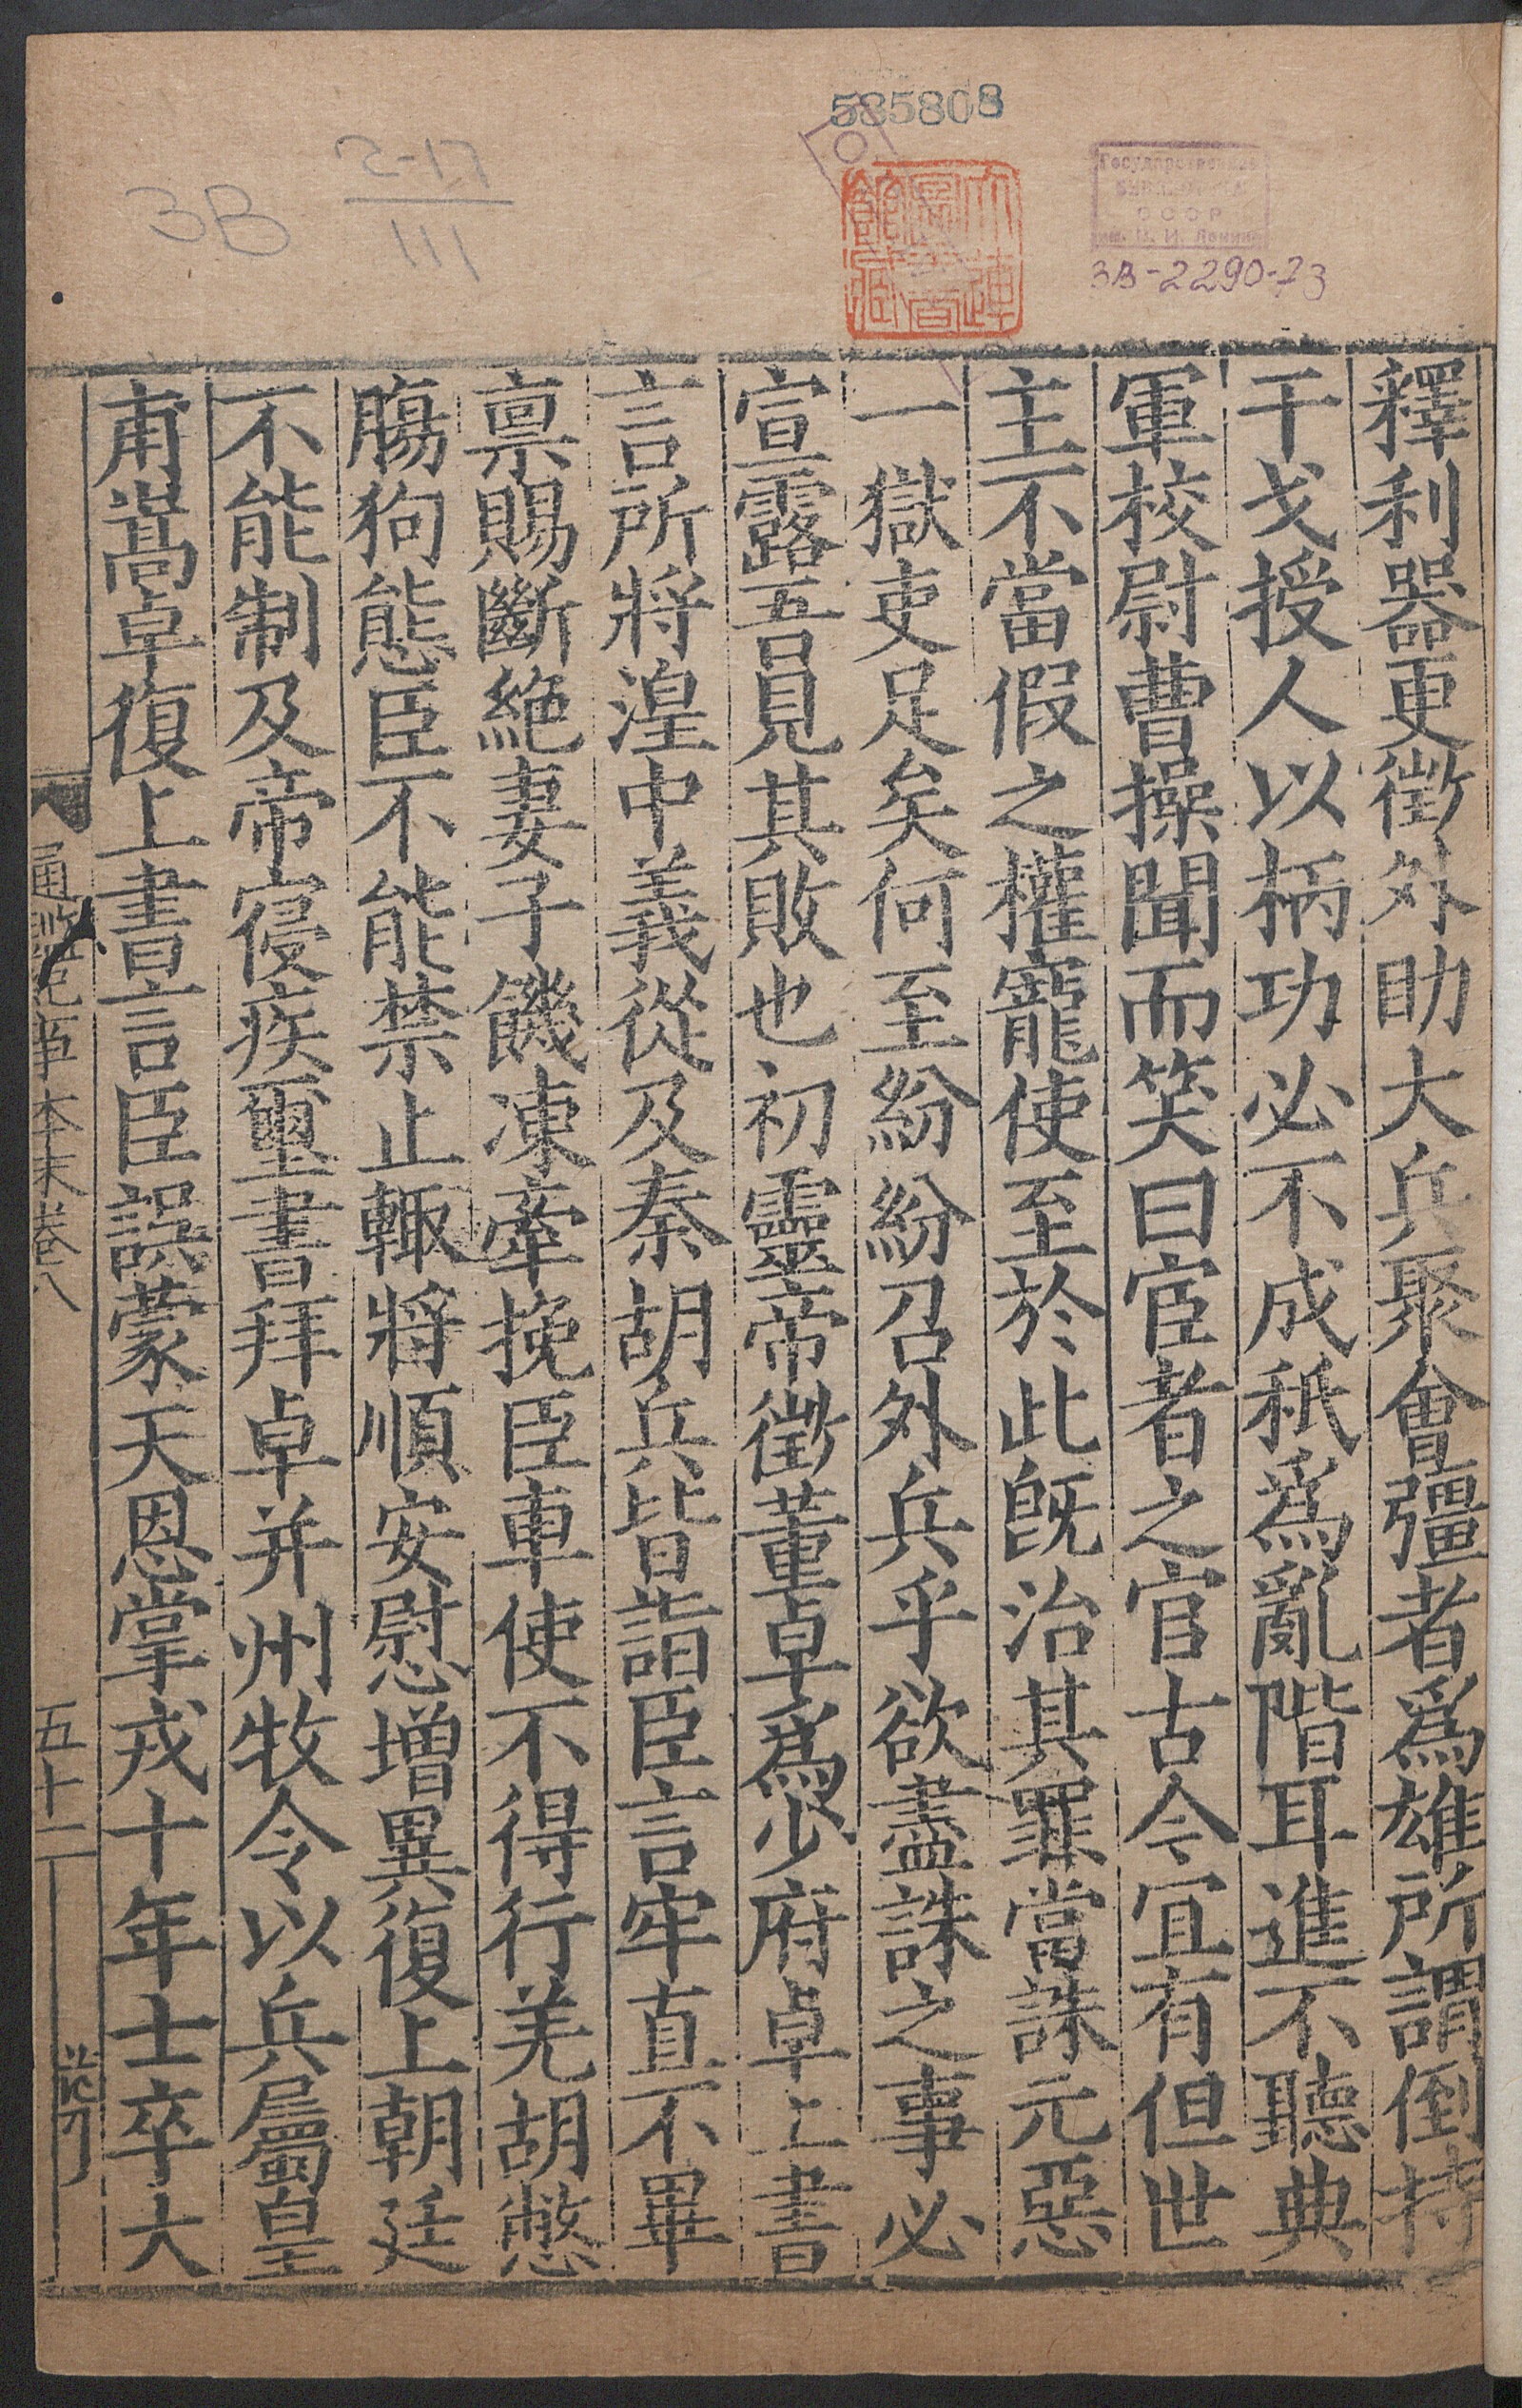 585808
З-17
III
3В
大連圖書館藏
Государственная
БИБЛИОТЕКА
СССР
им. В. И. Ленина
3В-2290-73
釋利器更徵外助大兵聚會彊者爲雄所謂倒持
干戈授人以柄功必不成秖爲亂階耳進不聽典
軍校尉曹操聞而笑曰宦者之官古今宜有但世
主不當假之權寵使至於此旣治其罪當誅元惡
一獄吏足矣何至紛紛召外兵乎欲盡誅之事必
宣露吾見其敗也初靈帝徵董卓爲少府卓上書
言所將湟中義從及秦胡兵皆詣臣言牢直不畢
禀賜斷絶妻子饑凍牽挽臣車使不得行羌胡憋
腸狗態臣不能禁止輙將順安慰增異復上朝廷
不能制及帝寝疾璽書拜卓并州牧令以兵屬皇
甫嵩卓復上書言臣誤蒙天恩掌戎十年士卒大
通鑑紀事本末卷八
五十一